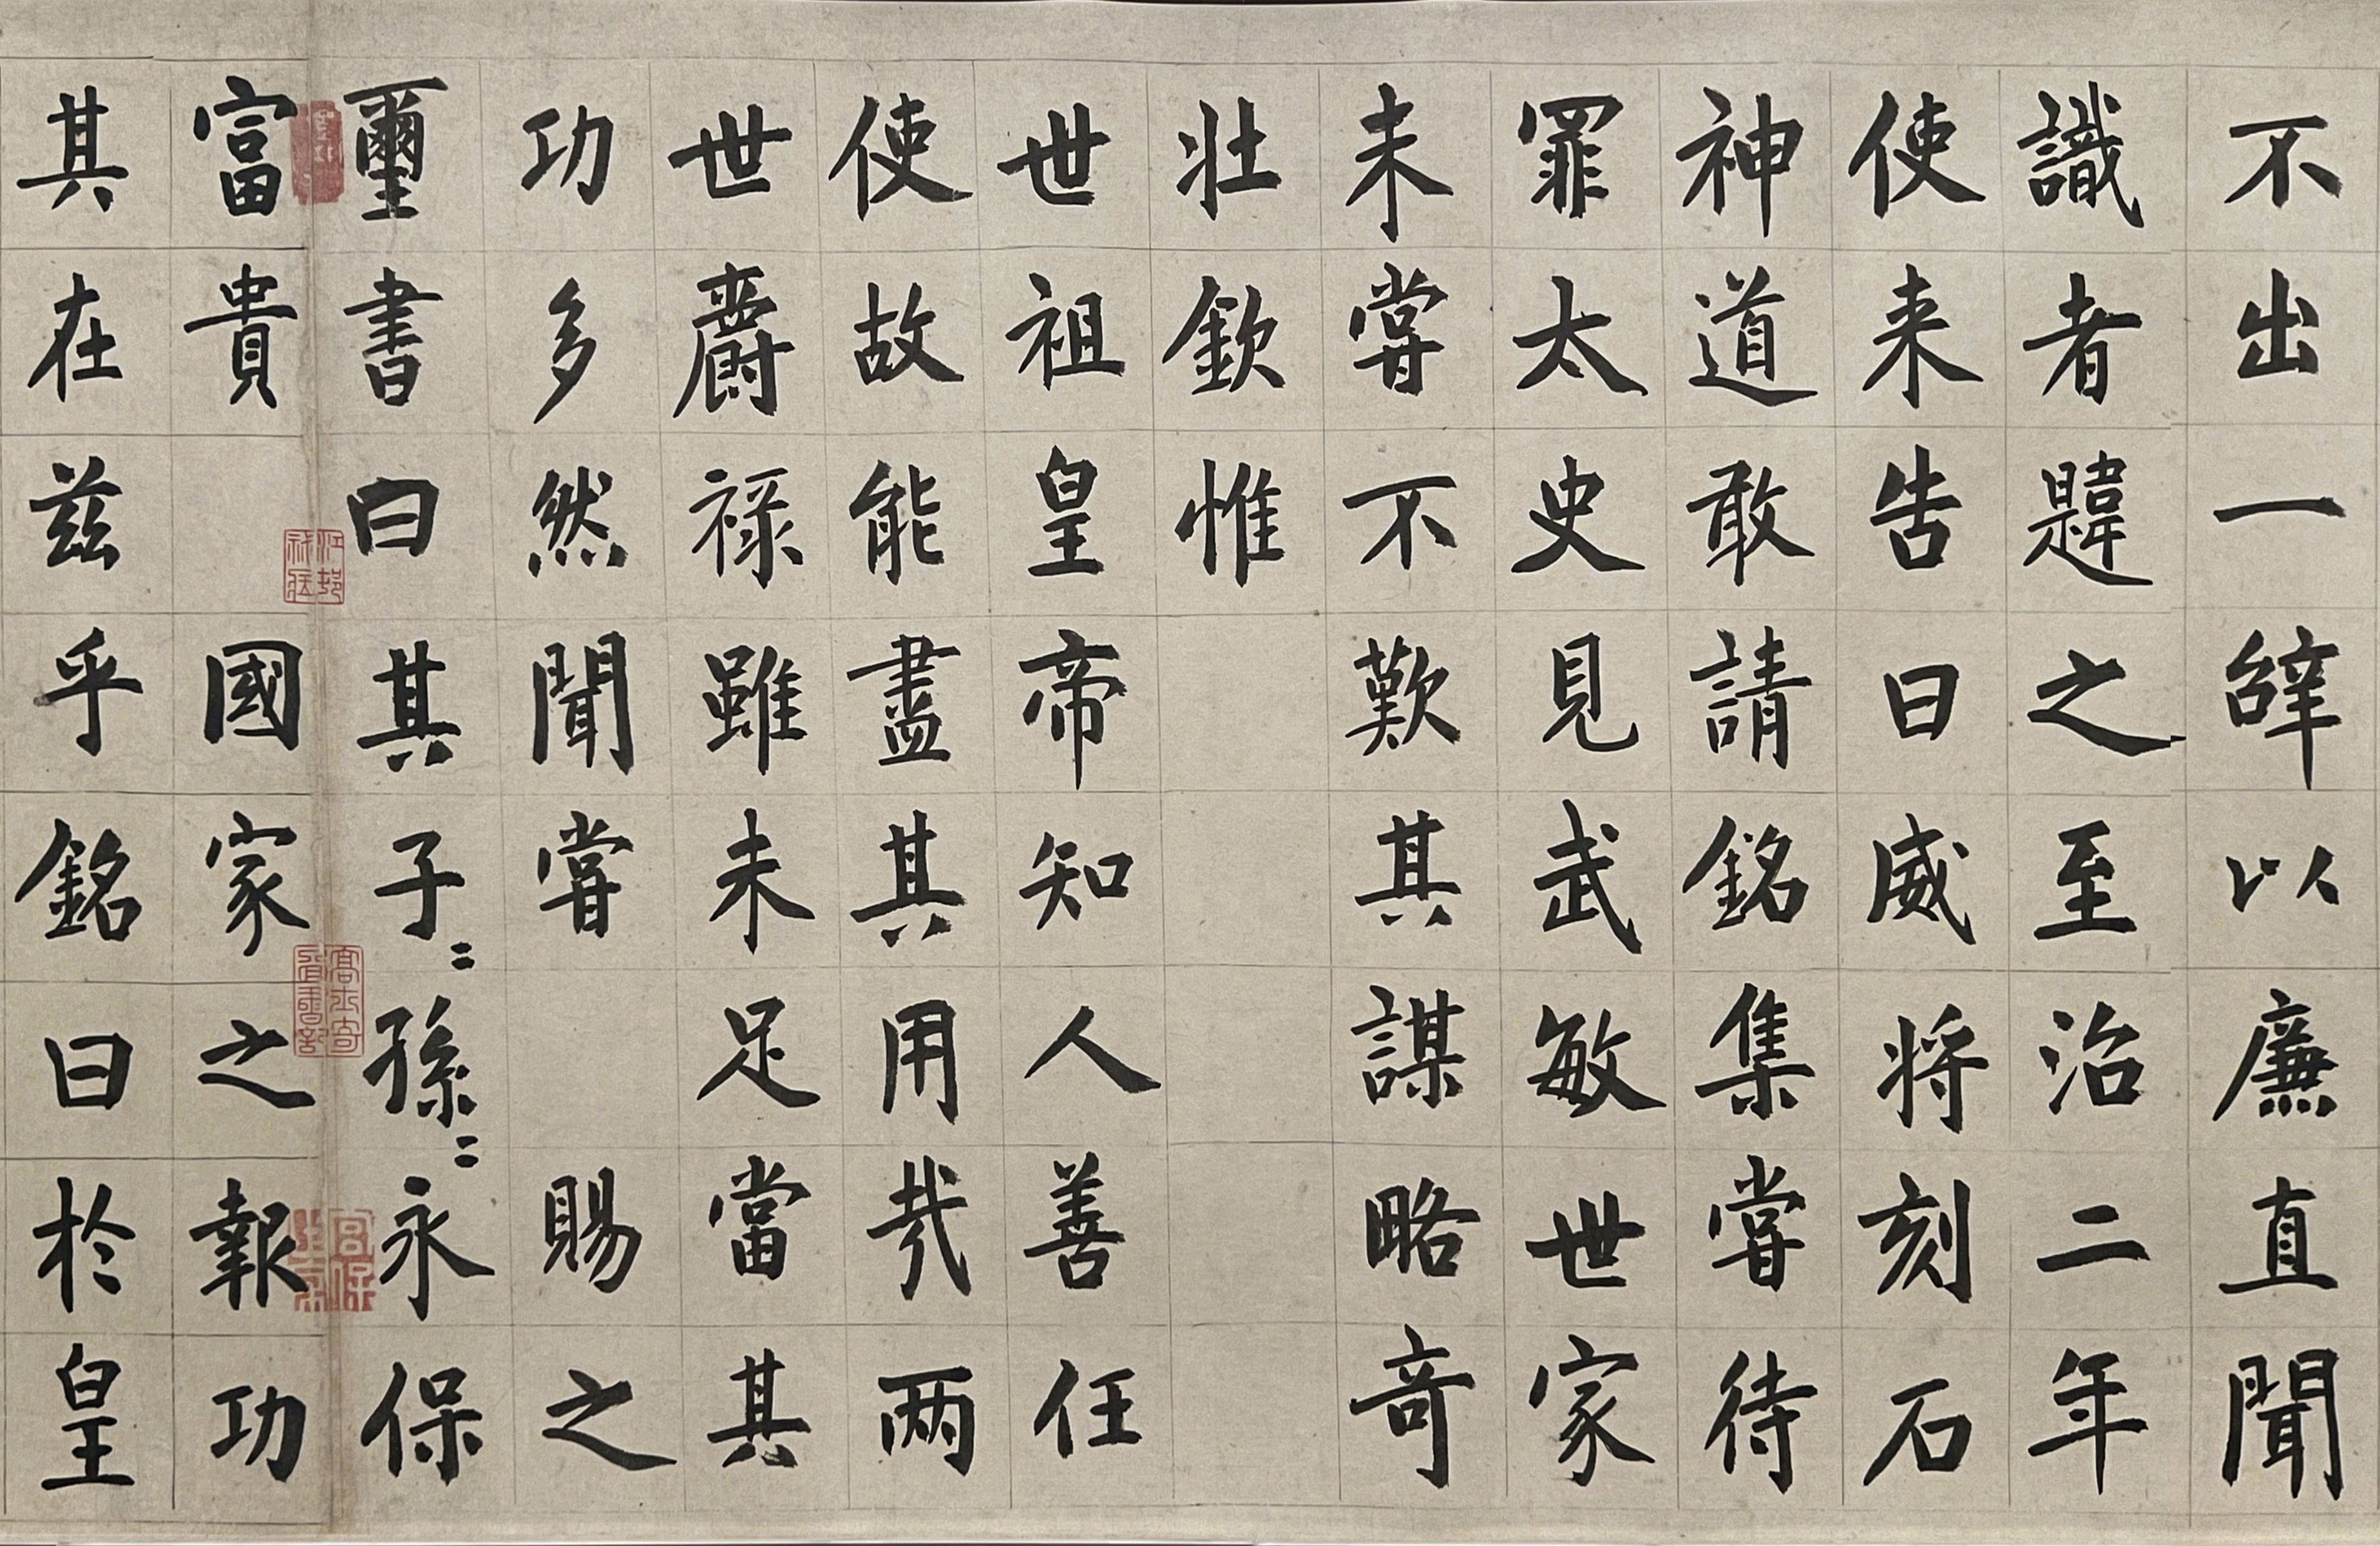 不出一辝以廉直聞
識者韙之至治二年
使来告曰威将刻石
神道敢請銘集嘗待
罪太史見武敏世家
未嘗不歎其謀略奇
壮欽惟
世祖皇帝知人善任
使故能盡其用哉两
世爵禄雖未足當其
功多然聞嘗賜之
璽書曰其子〻孫〻永保
富貴國家之報功
其在兹乎銘曰於皇